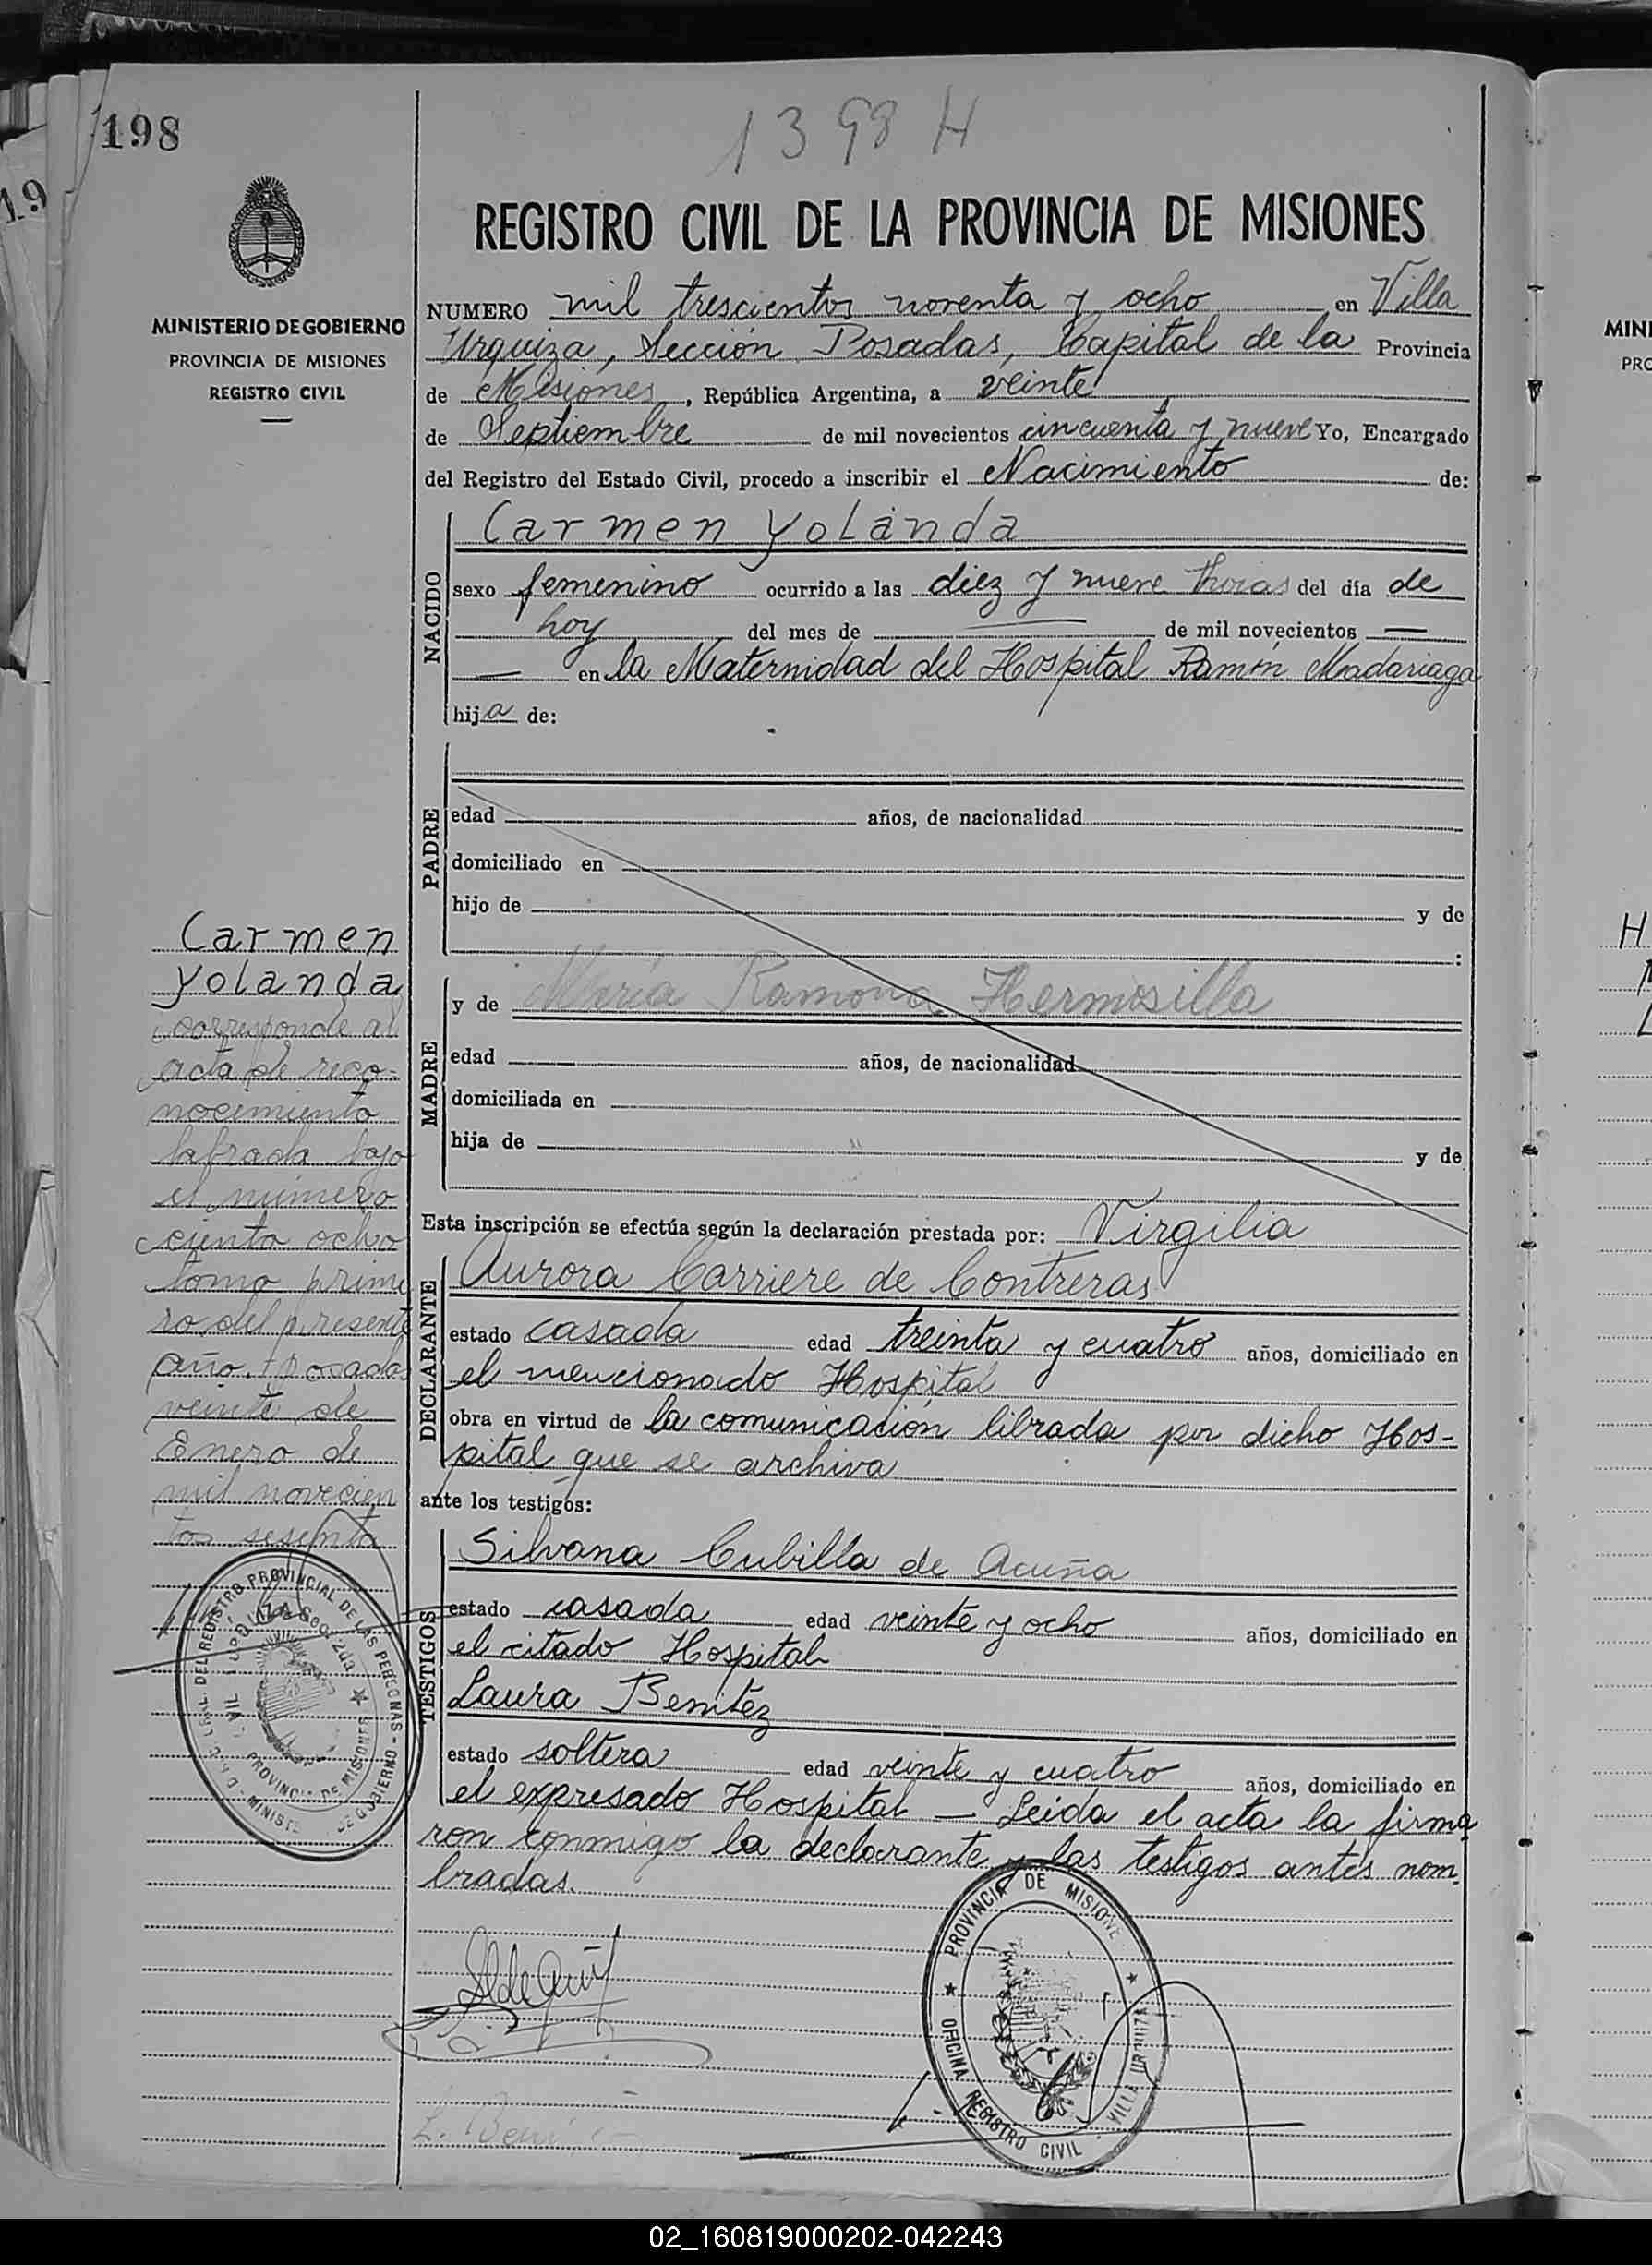 198
1398 H
19
REGISTRO CIVIL DE LA PROVINCIA DE MISIONES
MINISTERIO DE GOBIERNO
PROVINCIA DE MISIONES
REGISTRO CIVIL
NUMERO mil trescientos noventa y ocho en Villa
Urquiza, Sección Posadas, Capital de la Provincia
de Misiones, República Argentina, a veinte
de Septiembre de mil novecientos cincuenta y nueve Yo, Encargado
del Registro del Estado Civil, procedo a inscribir el Nacimiento de:
NACIDO
Carmen Yolanda
sexo femenino ocurrido a las diez y nueve horas del día de
hoy del mes de — de mil novecientos —
— en la Maternidad del Hospital Ramón Madariaga
hija de:
PADRE
edad años, de nacionalidad
domiciliado en
hijo de y de
:
MADRE
y de María Ramona Hermosilla
edad años, de nacionalidad
domiciliada en
hija de y de
Esta inscripción se efectúa según la declaración prestada por: Virgilia
DECLARANTE
Aurora Carriere de Contreras
estado casada edad treinta y cuatro años, domiciliado en
el mencionado Hospital
obra en virtud de la comunicación librada por dicho Hos-
pital que se archiva
ante los testigos:
TESTIGOS
Silvana Cubilla de Acuña
estado casada edad veinte y ocho años, domiciliado en
el citado Hospital
Laura Benitez
estado soltera edad veinte y cuatro años, domiciliado en
el expresado Hospital — Leida el acta la firma
ron conmigo la declarante y las testigos antes nom
bradas.
Carmen
Yolanda
corresponde al
acta de reco-
nocimiento
labrada bajo
el número
ciento ocho
tomo prime
ro del presente
año. Posadas
veinte de
Enero de
mil novecien
tos sesenta
REGISTRO PROVINCIAL DE LAS PERSONAS
PROVINCIA DE MISIONES
PROVINCIA DE MISIONES
OFICINA REGISTRO CIVIL
VILLA URQUIZA
MINI
PRO
H
02_160819000202-042243